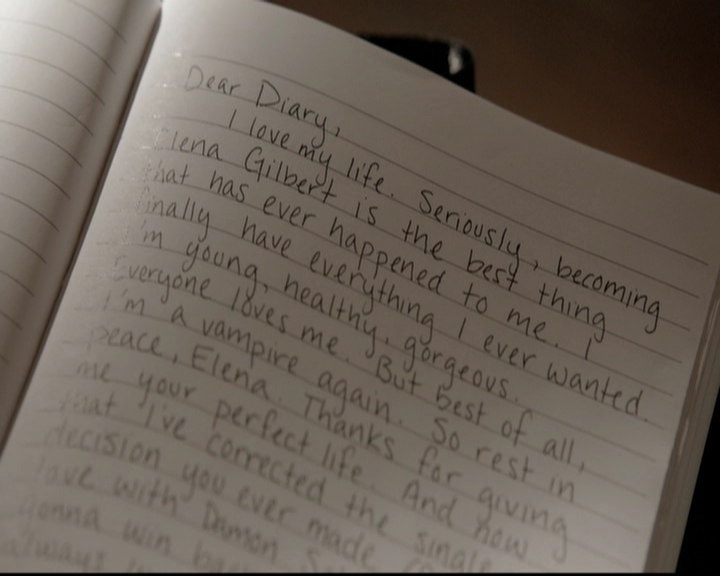 Dear Diary,
I love my life. Seriously, becoming
Elena Gilbert is the best thing
that has ever happened to me. I
finally have everything I ever wanted.
I'm young, healthy, gorgeous.
Everyone loves me. But best of all,
I'm a vampire again. So rest in
peace, Elena. Thanks for giving
me your perfect life. And now
that I've corrected the single
decision you ever made
love with Damon
gonna win
always